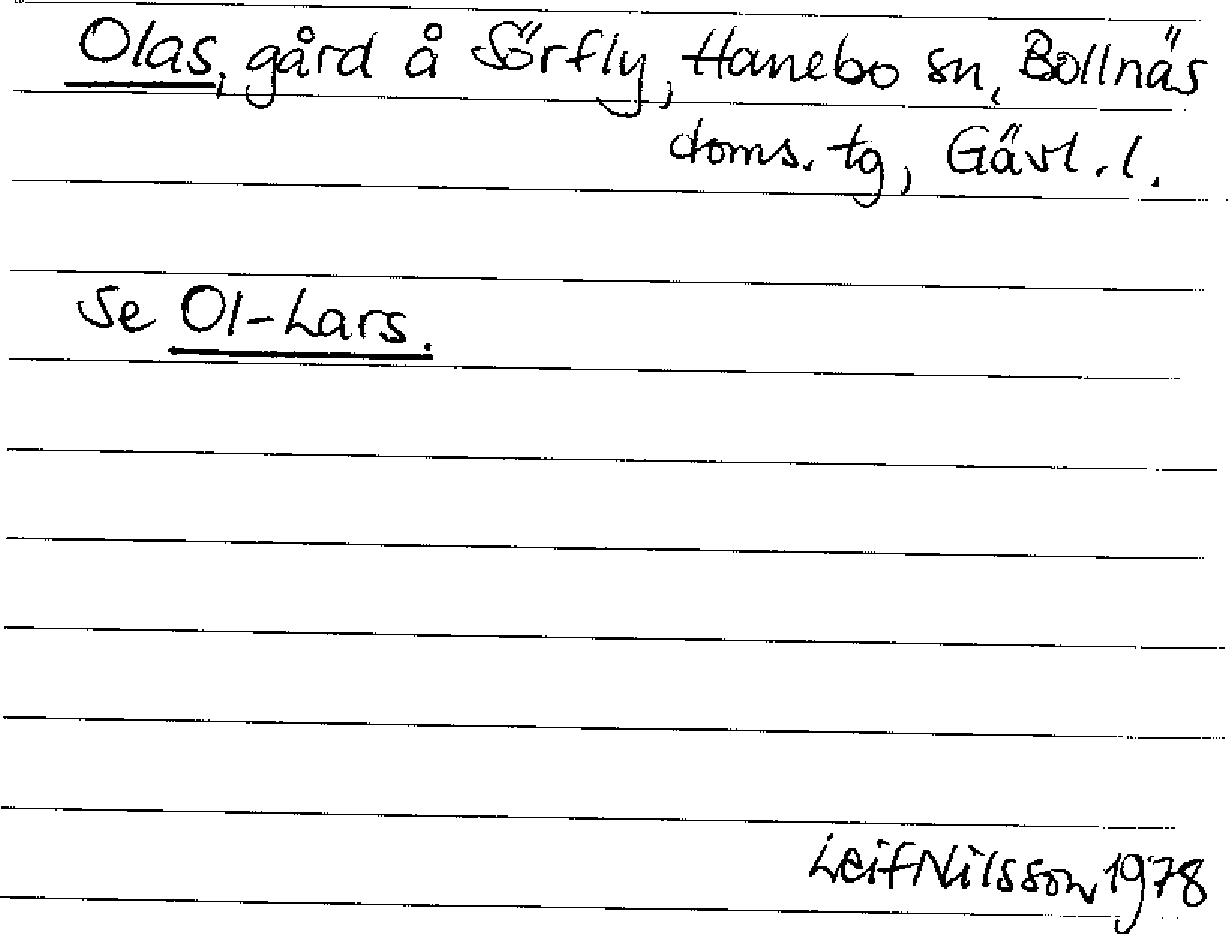 Olas, gård å Sörfly, Hanebo sn, Bollnäs
doms. tg, Gävl. l.
Se Ol-Lars.
Leif Nilsson 1978